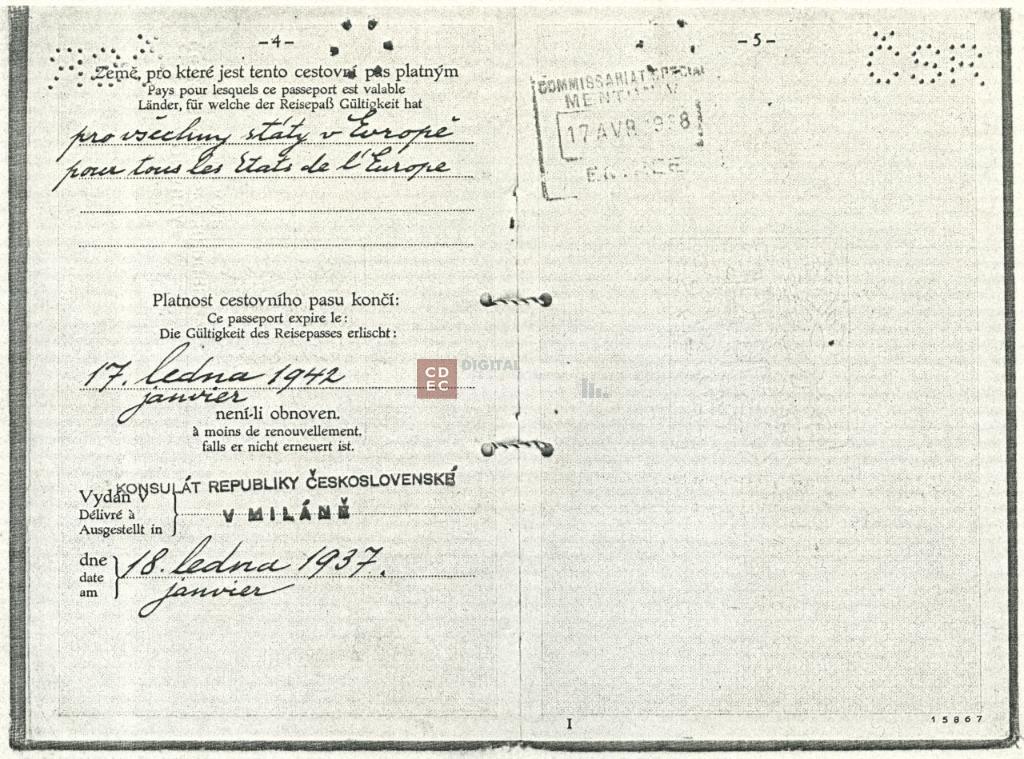 -4-
Země, pro které jest tento cestovní pas platným
Pays pour lesquels ce passeport est valable
Länder, für welche der Reisepaß Gültigkeit hat
pro všechny státy v Evropě
pour tous les États de l'Europe
Platnost cestovního pasu končí:
Ce passeport expire le:
Die Gültigkeit des Reisepasses erlischt:
17. ledna 1942
janvier
není-li obnoven.
à moins de renouvellement.
falls er nicht erneuert ist.
KONSULÁT REPUBLIKY ČESKOSLOVENSKÉ
Vydán v
Délivré à
V MILÁNĚ
Ausgestellt in
dne
18. ledna 1937.
date
janvier
am
CDEC
DIGITAL
-5-
ČSR
COMMISSARIAT SPECIAL
MENTON
17 AVR 1938
ENTREE
I
15867